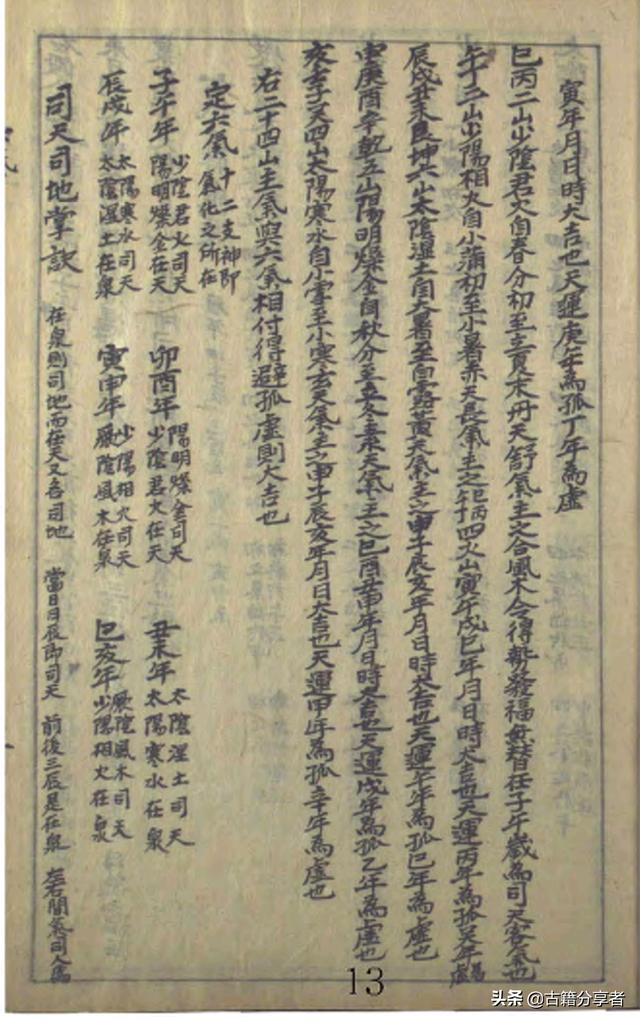 寅年月日時大吉也天運庚午為孤丁年為虛
巳丙二山少陰君火自春分初至立夏末丹天舒氣主之合風木令得勢發福無替在子午歲為司天客氣也
午丁二山少陽相火自小滿初至小暑赤天長氣主之四火山寅午戌巳年月日時大吉也天運丙年為孤癸年為虛
辰戌丑未艮坤六山太陰濕土自大暑至白露黃天氣主之申子辰亥年月日時大吉也天運午年為孤巳年為虛也
申庚酉辛乾五山陽明燥金自秋分至立冬素天氣主之巳酉丑申年月日時大吉也天運戊年為孤乙年為虛也
亥壬子癸四山太陽寒水自小雪至小寒玄天氣主之申子辰亥年月日大吉也天運甲年為孤辛年為虛也
右二十四山主氣與六氣相付得避孤虛則大吉也
定六氣 十二支神即氣化之所在
子午年 少陰君火司天 陽明燥金在天 卯酉年 陽明燥金司天 少陰君火在天 丑未年 太陰溼土司天 太陽寒水在泉
辰戌年 太陽寒水司天 太陰溼土在泉 寅申年 少陽相火司天 厥陰風木在泉 巳亥年 厥陰風木司天 少陽相火在泉
司天司地掌訣 在泉則司地而在天又各司地 當日日辰即司天 前後三辰是在泉 左右間氣司人焉
13
头条 @古籍分享者